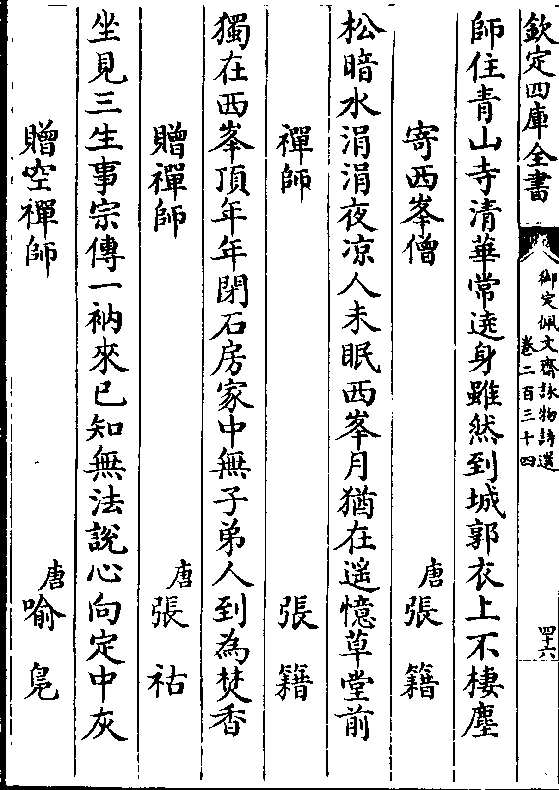 欽定四庫全書
御定佩文齋詠物詩選
卷二百三十四
四十六
師住青山寺清華常遶身雖然到城郭衣上不棲塵
寄西峯僧　唐張籍
松暗水涓涓夜凉人未眠西峯月猶在遥憶草堂前
禪師　張籍
獨在西峯頂年年閉石房家中無子弟人到為焚香
贈禪師　唐張祜
坐見三生事宗傳一衲來已知無法說心向定中灰
贈空禪師　唐喻鳧